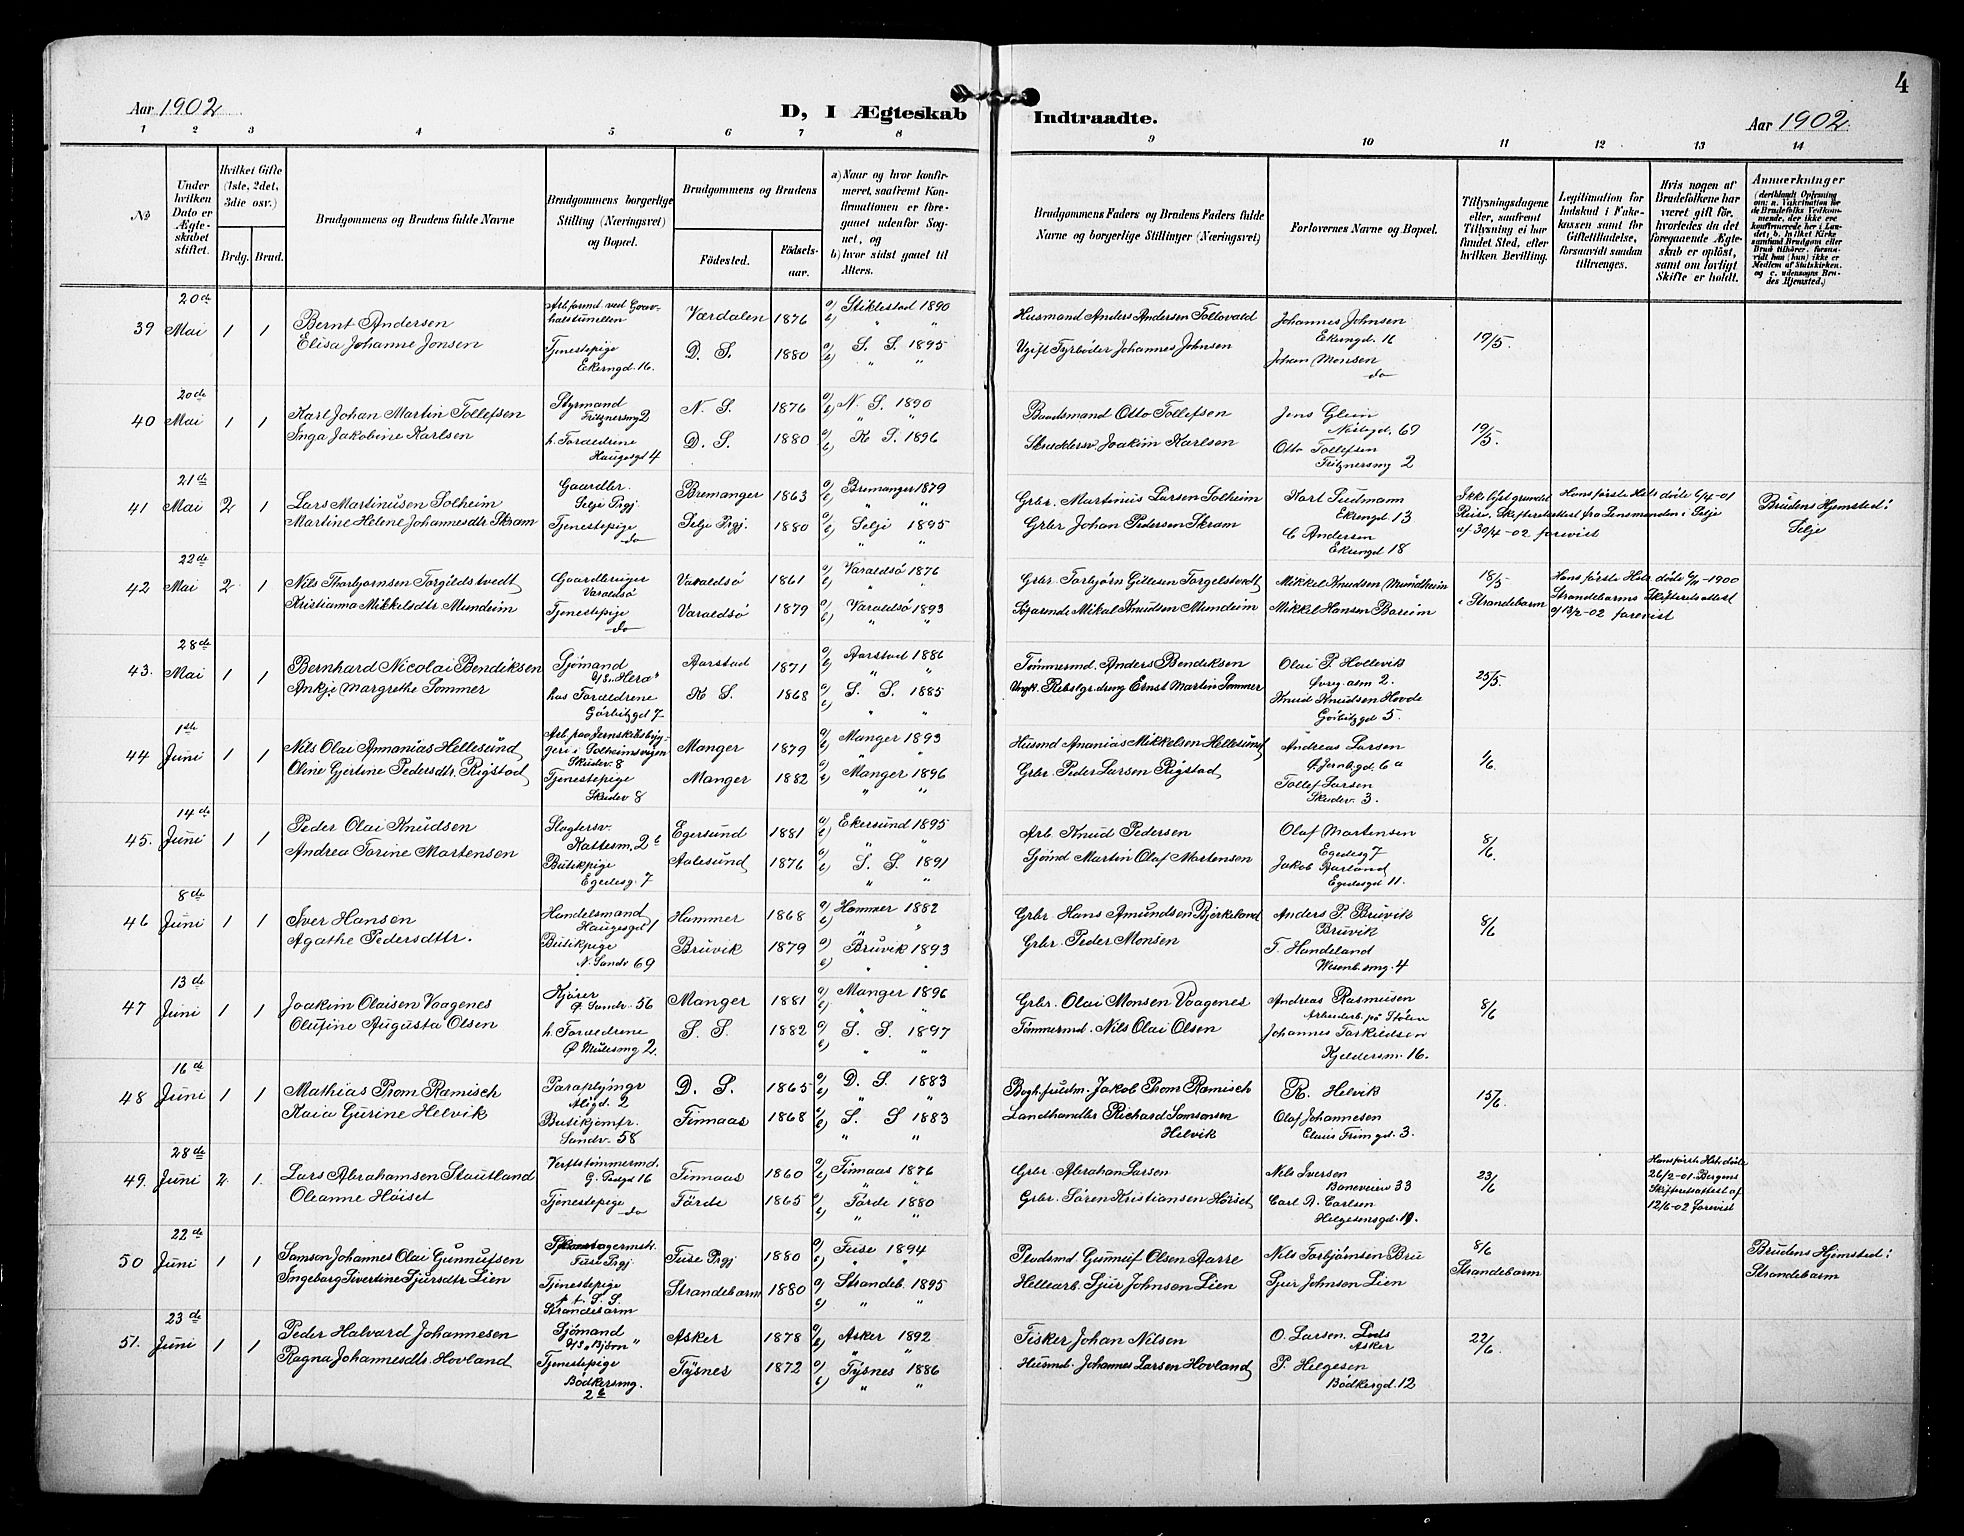 4
Aar 1902
D, I Ægteskab Indtraadte.
Aar 1902.
1 2 3 4 5 6 7 8 9 10 11 12 13 14
No
Under hvilken Dato er Ægteskabet stiftet.
Hvilket Gifte (1ste, 2det, 3die osv.)
Brdg. Brud.
Brudgommens og Brudens fulde Navne
Brudgommens borgerlige Stilling (Næringsvei) og Bopæl.
Brudgommens og Brudens
Födested.
Födselsaar.
a) Naar og hvor konfirmeret, saafremt Konfirmationen er foregaaet udenför Sognet, og
b) hvor sidst gaaet til Alters.
Brudgommens Faders og Brudens Faders fulde Navne og borgerlige Stillinger (Næringsvei)
Forlovernes Navne og Bopæl.
Tillysningsdagene eller, saafremt Tillysning ei har fundet Sted, efter hvilken Bevilling.
Legitimation for Indskud i Enkekassen samt for Giftetilladelse, forsaavidt saadan tiltrænges.
Hvis nogen af Brudefolkene har været gift för, hvorledes da det foregaaende Ægteskab er oplöst, samt om lovligt Skifte er holdt.
Anmærkninger
(deriblandt Oplysning om: a. Vakcination for de Brudefolks Vedkommende, der ikke ere konfirmerede her i Landet; b. hvilket Kirkesamfund Brudgom eller Brud tilhörer, forsaavidt han (hun) ikke er Medlem af Statskirken, og c. udensogns Brudes Hjemsted.)
39 20de Mai 1 1 Bernt Andersen
Elisa Johanne Jonsen
Arbformd ved Gravhalstunellen
Tjenestepige Ekerngd. 16.
Værdalen 1876 a) Stiklestad 1890
D. S. 1880 a) S. S. 1895
Husmand Anders Andersen Tollovald
Ugift Fyrböder Johannes Johnsen
Johannes Johnsen Ekerngd. 16
Johan Monsen do
19/5.
40 20de Mai 1 1 Karl Johan Martin Tollefsen
Inga Jakobine Karlsen
Styrmand Fritznersmg 2
h. Foraeldrene Haugesgd 4
N. S. 1876 a) N. S. 1890
D. S. 1880 a) K S. 1896
Baadsmand Otto Tollefsen
Skrædersv. Joakim Karlsen
Jens Glein Nöstegd. 69
Otto Tollefsen Fritznersmg 2
19/5.
41 21de Mai 2 1 Lars Martinusen Solheim
Martine Helene Johannesdtr Skram
Gaardbr. Selje Prgj.
Tjenestepige do
Bremanger 1863 a) Bremanger 1879
Selje Prgj. 1880 a) Selje 1895
Grbr. Martinus Larsen Solheim
Grbr Johan Pedersen Skram
Karl Sudmann Ekrengd 13
C Andersen Ekrengd 18
Ikke lyst grundet Reise.
Hans förste Hst. döde 6/4-01
Skifteretsattest fra Lensmanden i Selje
af 30/4-02 forevist
Brudens Hjemsted: Selje
42 22de Mai 2 1 Nils Thorbjornsen Torgildstvedt
Kristianna Mikkelsdtr Mundeim
Gaardbruger Varaldsö
Tjenestepige do
Varaldsö 1861 a) Varaldsö 1876
Varaldsö 1879 a) Varaldsö 1893
Grbr. Torbjörn Gillesen Torgelstvedt
Mikal Knudsen Mundeim
Mikkel Knudsen Mundheim
Mikkel Hansen Bareim
18/5 i Strandebarm
Hans förste Hst. döde 6/11-1900
Strandebarms Skifteretsattest
af 13/2-02 forevist
43. 28de Mai 1 1 Bernhard Nicolai Bendiksen
Ankje Margrethe Sommer
Sjömand D/S "Hera"
hos Foraeldrene Görbitzgd 7
Aarstad 1871 a) Aarstad 1886
K S. 1868 a) S. S. 1885
Tömmermd. Anders Bendiksen
Ungk. Rebslgrdreng Ernst Martin Sommer
Olai P. Hollevik Övreg. alm 2.
Knud Knudsen Hovde Görbitzgd 5.
25/5.
44 1ste Juni 1 1 Nils Olai Annanias Hellesund
Oline Gjertine Pedersdtr. Rigstad
Arb. paa Jernskibsbyggeri i Solheimsvigen Skudev. 8
Tjenestepige Skudev 8
Manger 1879 a) Manger 1893
Manger 1882 a) Manger 1896
Husmd Ananias Mikkelsen Hellesund
Grbr. Peder Larsen Rigstad
Andreas Larsen 6 a
Tollef Larsen Skudev. 3.
1/6.
45. 14de Juni 1 1 Peder Olai Knudsen
Andrea Torine Martensen
Slagtersv. Kattesm. 2 b
Butikpige Egedesg. 7
Egersund 1881 a) Ekersund 1895
Aalesund 1876 a) S. S. 1891
Arb. Knud Pedersen
Sjömd Martin Olaf Martensen
Olaf Martensen Egedesg 7
Jakob Aarland Egedesgd 11.
8/6.
46 8de Juni 1 1 Iver Hansen
Agathe Pedersdttr.
Handelsmand Haugesgd 1
Butikpige N. Sandv 69
Hammer 1868 a) Hammer 1882
Bruvik 1879 a) Bruvik 1893
Grbr Hans Amundsen Bjerkeland
Grbr. Peder Monsen
Anders P. Bruvik Bruvik
T. Handeland Wesenb.smg. 4
8/6
47 13de Juni 1 1 Joakim Olaisen Vaagenes
Olufine Augusta Olsen
Kjörer Ö. Sandv. 56
h. Foraeldrene Ö Mulesmg 2.
Manger 1881 a) Manger 1896
S. S. 1882 a) S. S. 1897
Grbr. Olai Monsen Vaagenes
Tömmermd. Nils Olai Olsen
Andreas Rasmusen Arbeiderb. på Stölen
Johannes Torkildsen Kjeldersm. 16.
8/6
48 16de Juni 1 1 Mathias Prom Ramisch
Kaia Gurine Helvik
Paraplymgr
Butikjomfr. Sandv. 58
D. S. 1865 a) D. S. 1883
Finnaas 1868 a) S. S 1883
Bogh.fuldm. Jakob Prom Ramisch
Landhandler Richard Samsonsen Helvik
R. Helvik
Olaf Johannesen Claus Frimgd. 3.
15/6
49. 28de Juni 2 1. Lars Abrahamsen Stautland
Oleanne Höiset
Verftstömmermd. 16
Tjenestepige do
Finnaas 1860 a) Finnaas 1876
Förde 1865 a) Förde 1880
Grbr. Abraham Larsen
Grbr. Sören Kristiansen Höiset
Nils Iversen Baneveien 33
Carl A. Carlsen Helgesensgd. 19.
23/6
Hans förste Hst. döde 26/2-01. Bergens Skifteretsattest af 12/6-02 forevist
50 22de Juni 1 1 Samson Johannes Olai Gunnufsen
Ingeborg Sivertine Sjursdtr Lien
Fuse Prgj.
Tjenestepige p. t. S. S. Strandebarm
Fuse Prgj 1880 a) Fuse 1894
Strandebarm 1880 a) Strandeb. 1895
Pladsmd Gunnuf Olsen Aarre
Hellearb. Sjur Johnsen Lien
Nils Torbjörnsen Bru
Sjur Johnsen Lien
8/6 Strandebarm
Brudens Hjemsted: Strandebarm
51. 23de Juni 1 1 Peder Halvard Johannesen
Ragna Johannesdtr. Hovland
Sjömand D/S "Björn"
Tjenestepige Bödkersmg. 2 b
Asker 1878 a) Asker 1892
Tysnes 1872 a) Tysnes 1886
Fisker Johan Nilsen
Husmd. Johannes Larsen Hovland
O. Larsen. Lods Asker
P. Helgesen Bödkergd. 12
22/6